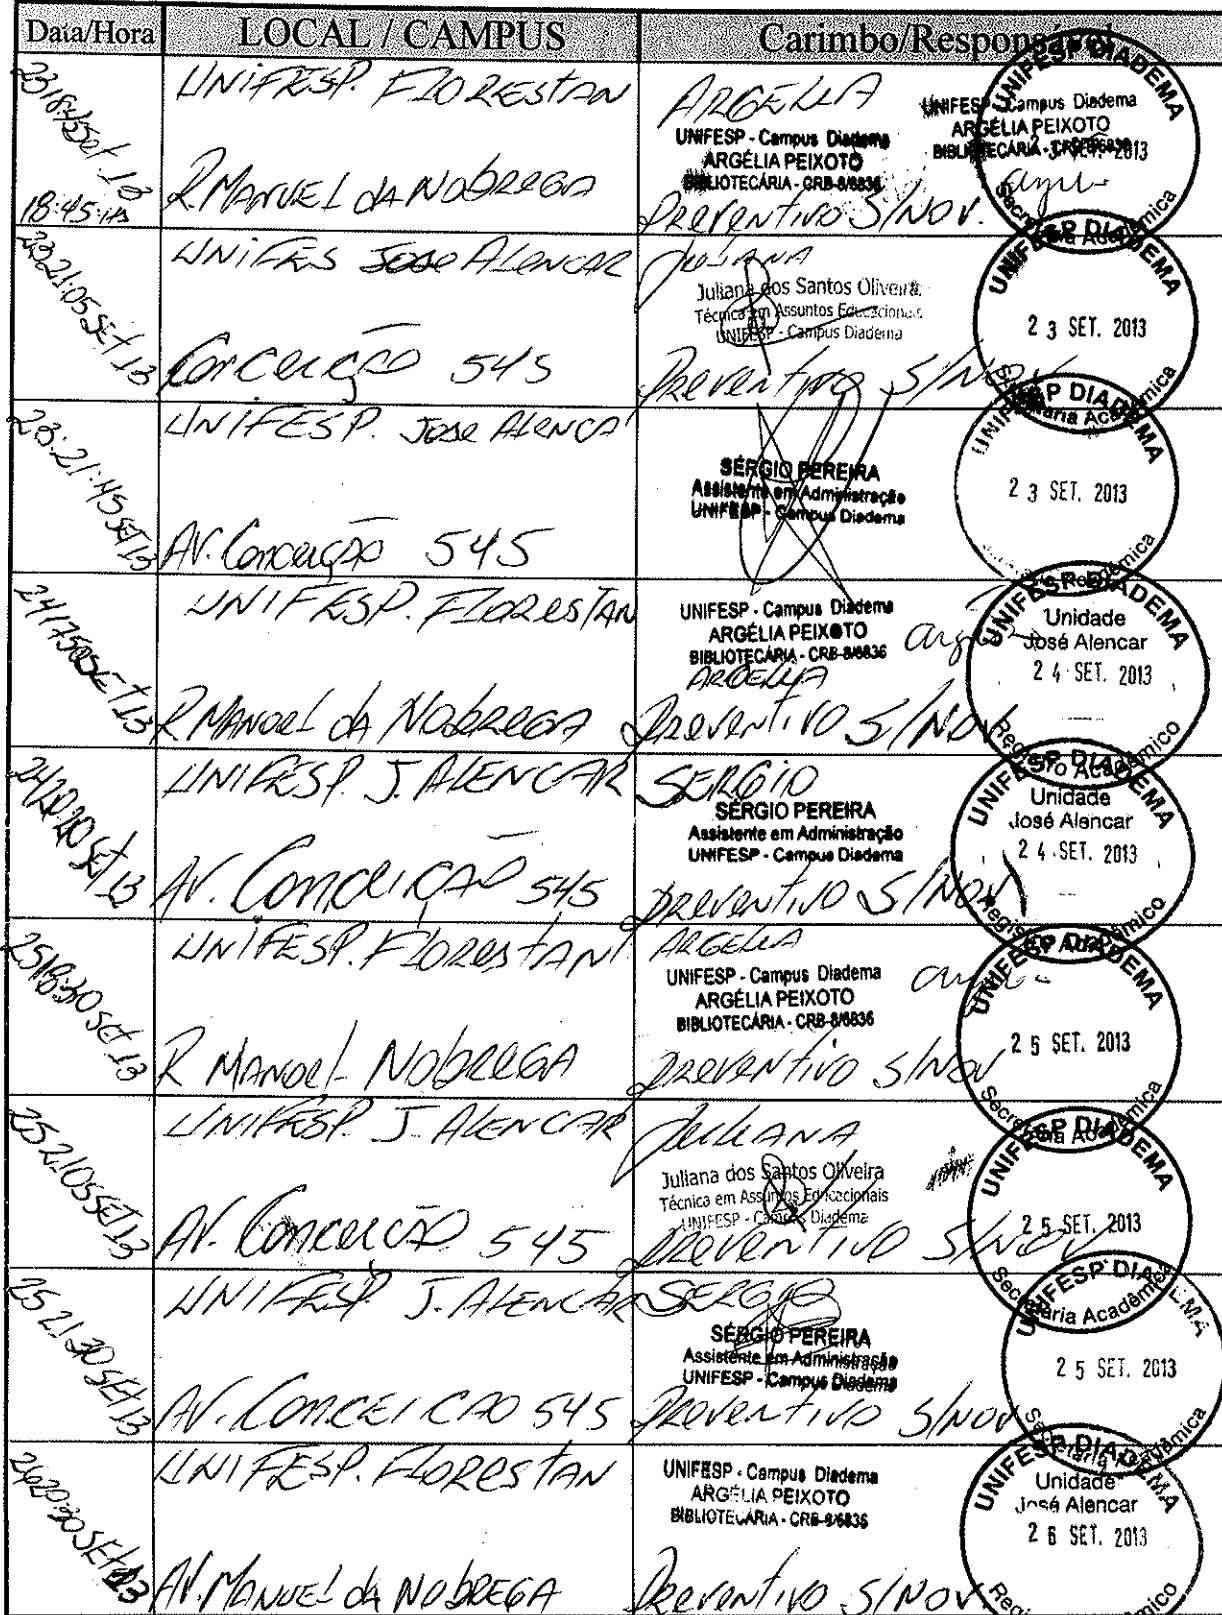 Data/Hora LOCAL / CAMPUS Carimbo/Responsável
UNIFESP. FLORESTAN
R MANUEL dA NObREGA
18:45
ARGELIA
UNIFESP - Campus Diadema
ARGÉLIA PEIXOTO
BIBLIOTECÁRIA - CRB-8/6836
Preventivo S/NOV.
UNIFESP - Campus Diadema
ARGÉLIA PEIXOTO
UNIFESP DIADEMA
2 3 SET. 2013
23 21:05 SET 13
UNIFES Jose Alencar
Conceição 545
JULIANA
Juliana dos Santos Oliveira
Técnica em Assuntos Educacionais
UNIFESP - Campus Diadema
Preventivo S/NOV
UNIFESP DIADEMA
2 3 SET. 2013
Secretaria Acadêmica
23:21:45 SET 13
UNIFESP. Jose Alenca
AV. Conceição 545
SÉRGIO PEREIRA
Assistente em Administração
UNIFESP - Campus Diadema
UNIFESP DIADEMA
2 3 SET. 2013
24/17:50 SET 13
UNIFESP. FlorestAN
R MANOEL dA NObREGA
UNIFESP - Campus Diadema
ARGÉLIA PEIXOTO
BIBLIOTECÁRIA - CRB-8/6836
ARGELIA
Preventivo S/NOV
UNIFESP DIADEMA
Unidade
José Alencar
2 4 SET. 2013
Registro Acadêmico
24/20:20 SET 13
UNIFESP. J. ALENCAR
AV. Conceição 545
SERGIO
SÉRGIO PEREIRA
Assistente em Administração
UNIFESP - Campus Diadema
Preventivo S/NOV
UNIFESP DIADEMA
Unidade
José Alencar
2 4 SET. 2013
Registro Acadêmico
25/18:30 SET 13
UNIFESP. FlorestAN
R MANOEL NObREGA
ARGELIA
UNIFESP - Campus Diadema
ARGÉLIA PEIXOTO
BIBLIOTECÁRIA - CRB-8/6836
Preventivo S/NOV
UNIFESP DIADEMA
2 5 SET. 2013
Secretaria Acadêmica
25 21:05 SET 13
UNIFESP. J. ALENCAR
AV. Conceição 545
JULIANA
Juliana dos Santos Oliveira
Técnica em Assuntos Educacionais
UNIFESP - Campus Diadema
Preventivo S/NOV
UNIFESP DIADEMA
2 5 SET. 2013
Secretaria Acadêmica
25 21:30 SET 13
UNIFESP J. ALENCAR
AV. CONCEICAO 545
SERGIO
SÉRGIO PEREIRA
Assistente em Administração
UNIFESP - Campus Diadema
Preventivo S/NOV
UNIFESP DIADEMA
2 5 SET. 2013
Secretaria Acadêmica
26 20:30 SET 13
UNIFESP. FlorestAN
AV. MANUEL dA NObREGA
UNIFESP - Campus Diadema
ARGÉLIA PEIXOTO
BIBLIOTECÁRIA - CRB-8/6836
Preventivo S/NOV
UNIFESP DIADEMA
Unidade
José Alencar
2 6 SET. 2013